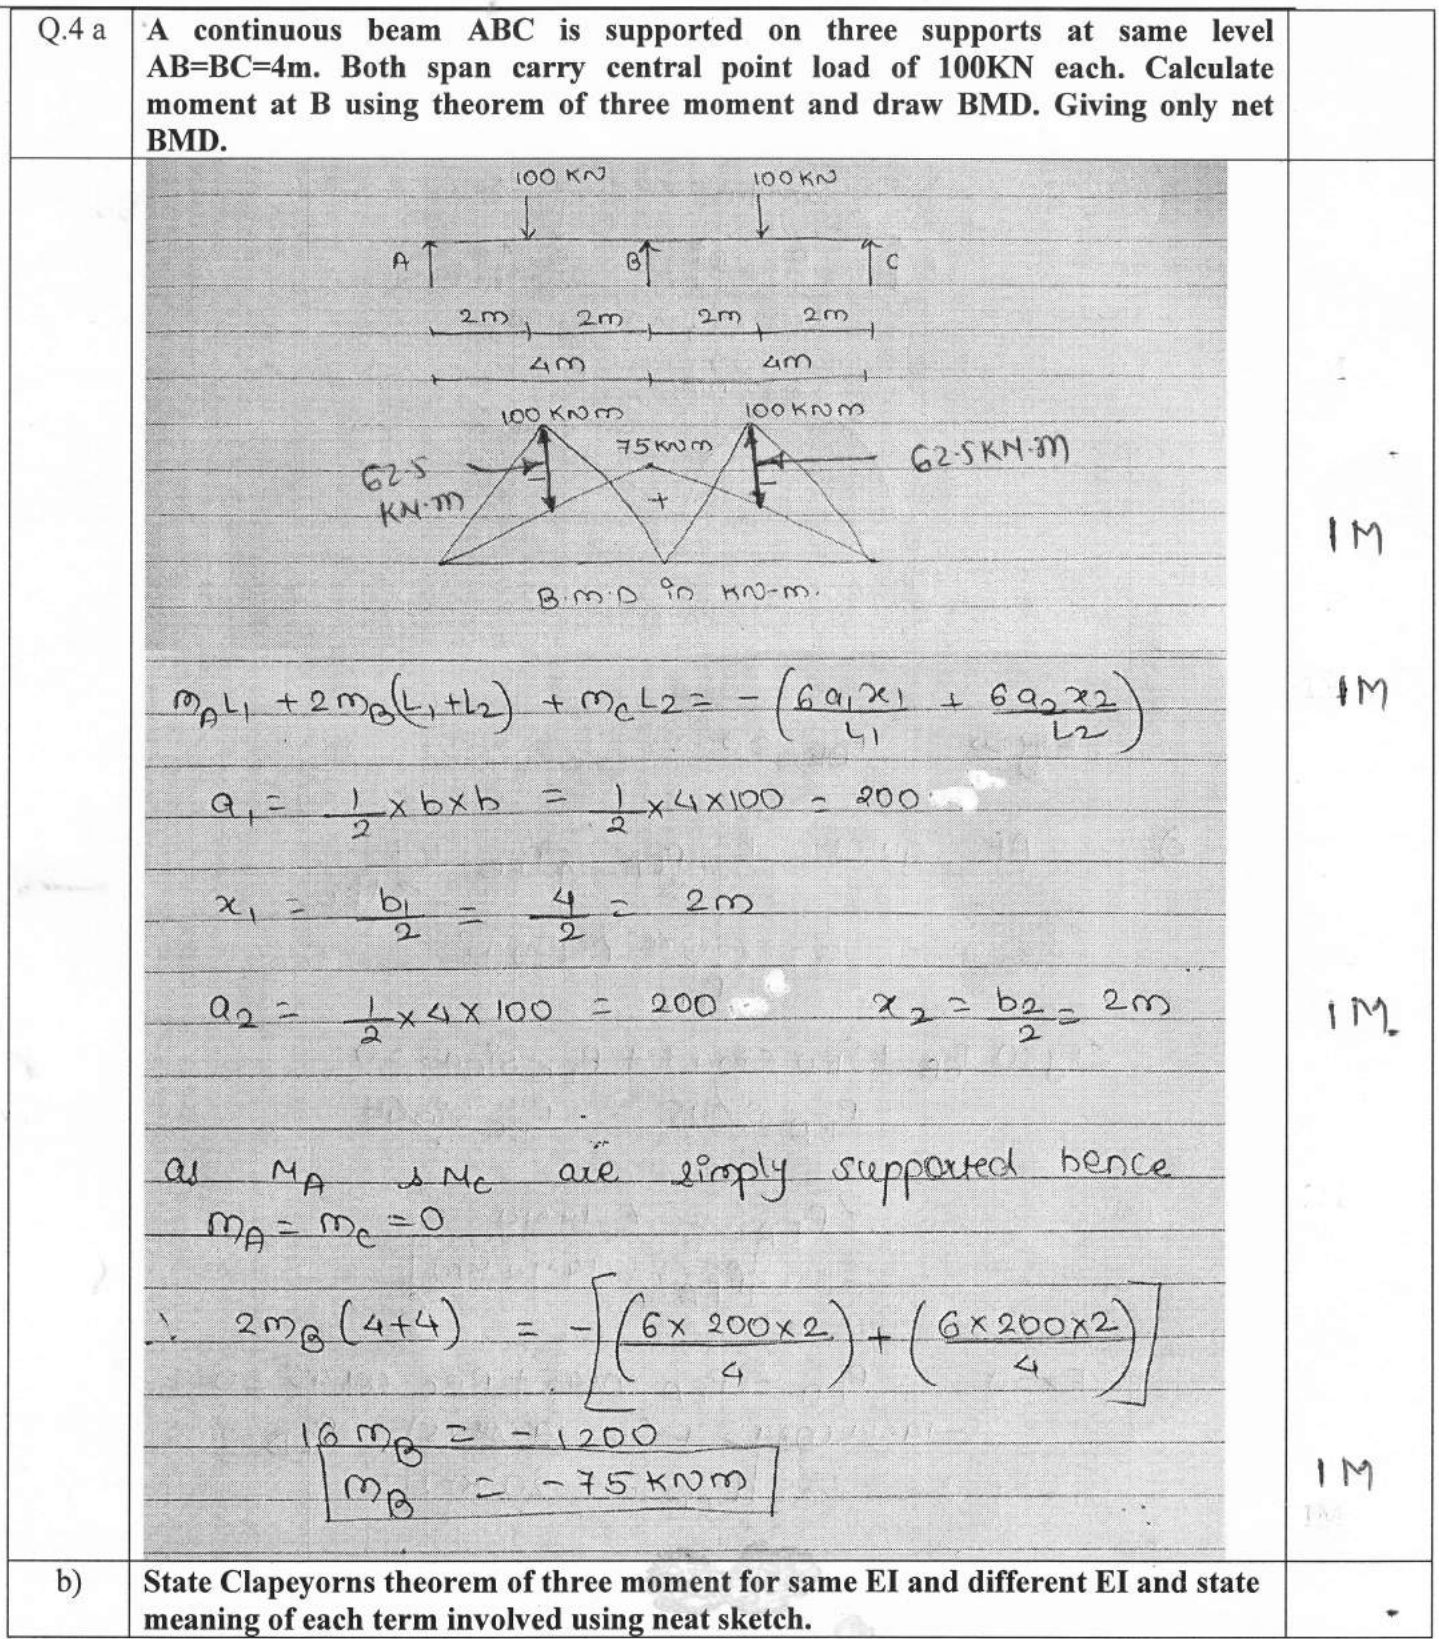 Q.4 a
A continuous beam ABC is supported on three supports at same level
AB=BC=4m. Both span carry central point load of 100KN each. Calculate
moment at B using theorem of three moment and draw BMD. Giving only net
BMD.
100 KN 100 KN
A B C
2m 2m 2m 2m
4m 4m
100 KNm 100 KNm
75 KNm
62.5 KN.m 62.5 KN.m
- + -
B.M.D in KN-m.
1M
mAL1 + 2mB(L1+L2) + mCL2 = - (6a1x1/L1 + 6a2x2/L2) 1M
a1 = 1/2 x b x h = 1/2 x 4 x 100 = 200
x1 = b1/2 = 4/2 = 2m
a2 = 1/2 x 4 x 100 = 200 x2 = b2/2 = 2m 1M.
as MA & MC are simply supported hence
mA = mC = 0
∴ 2mB (4+4) = - [(6 x 200 x 2/4) + (6 x 200 x 2/4)]
16 mB = - 1200
mB = - 75 KNm 1M
b)
State Clapeyorns theorem of three moment for same EI and different EI and state
meaning of each term involved using neat sketch.